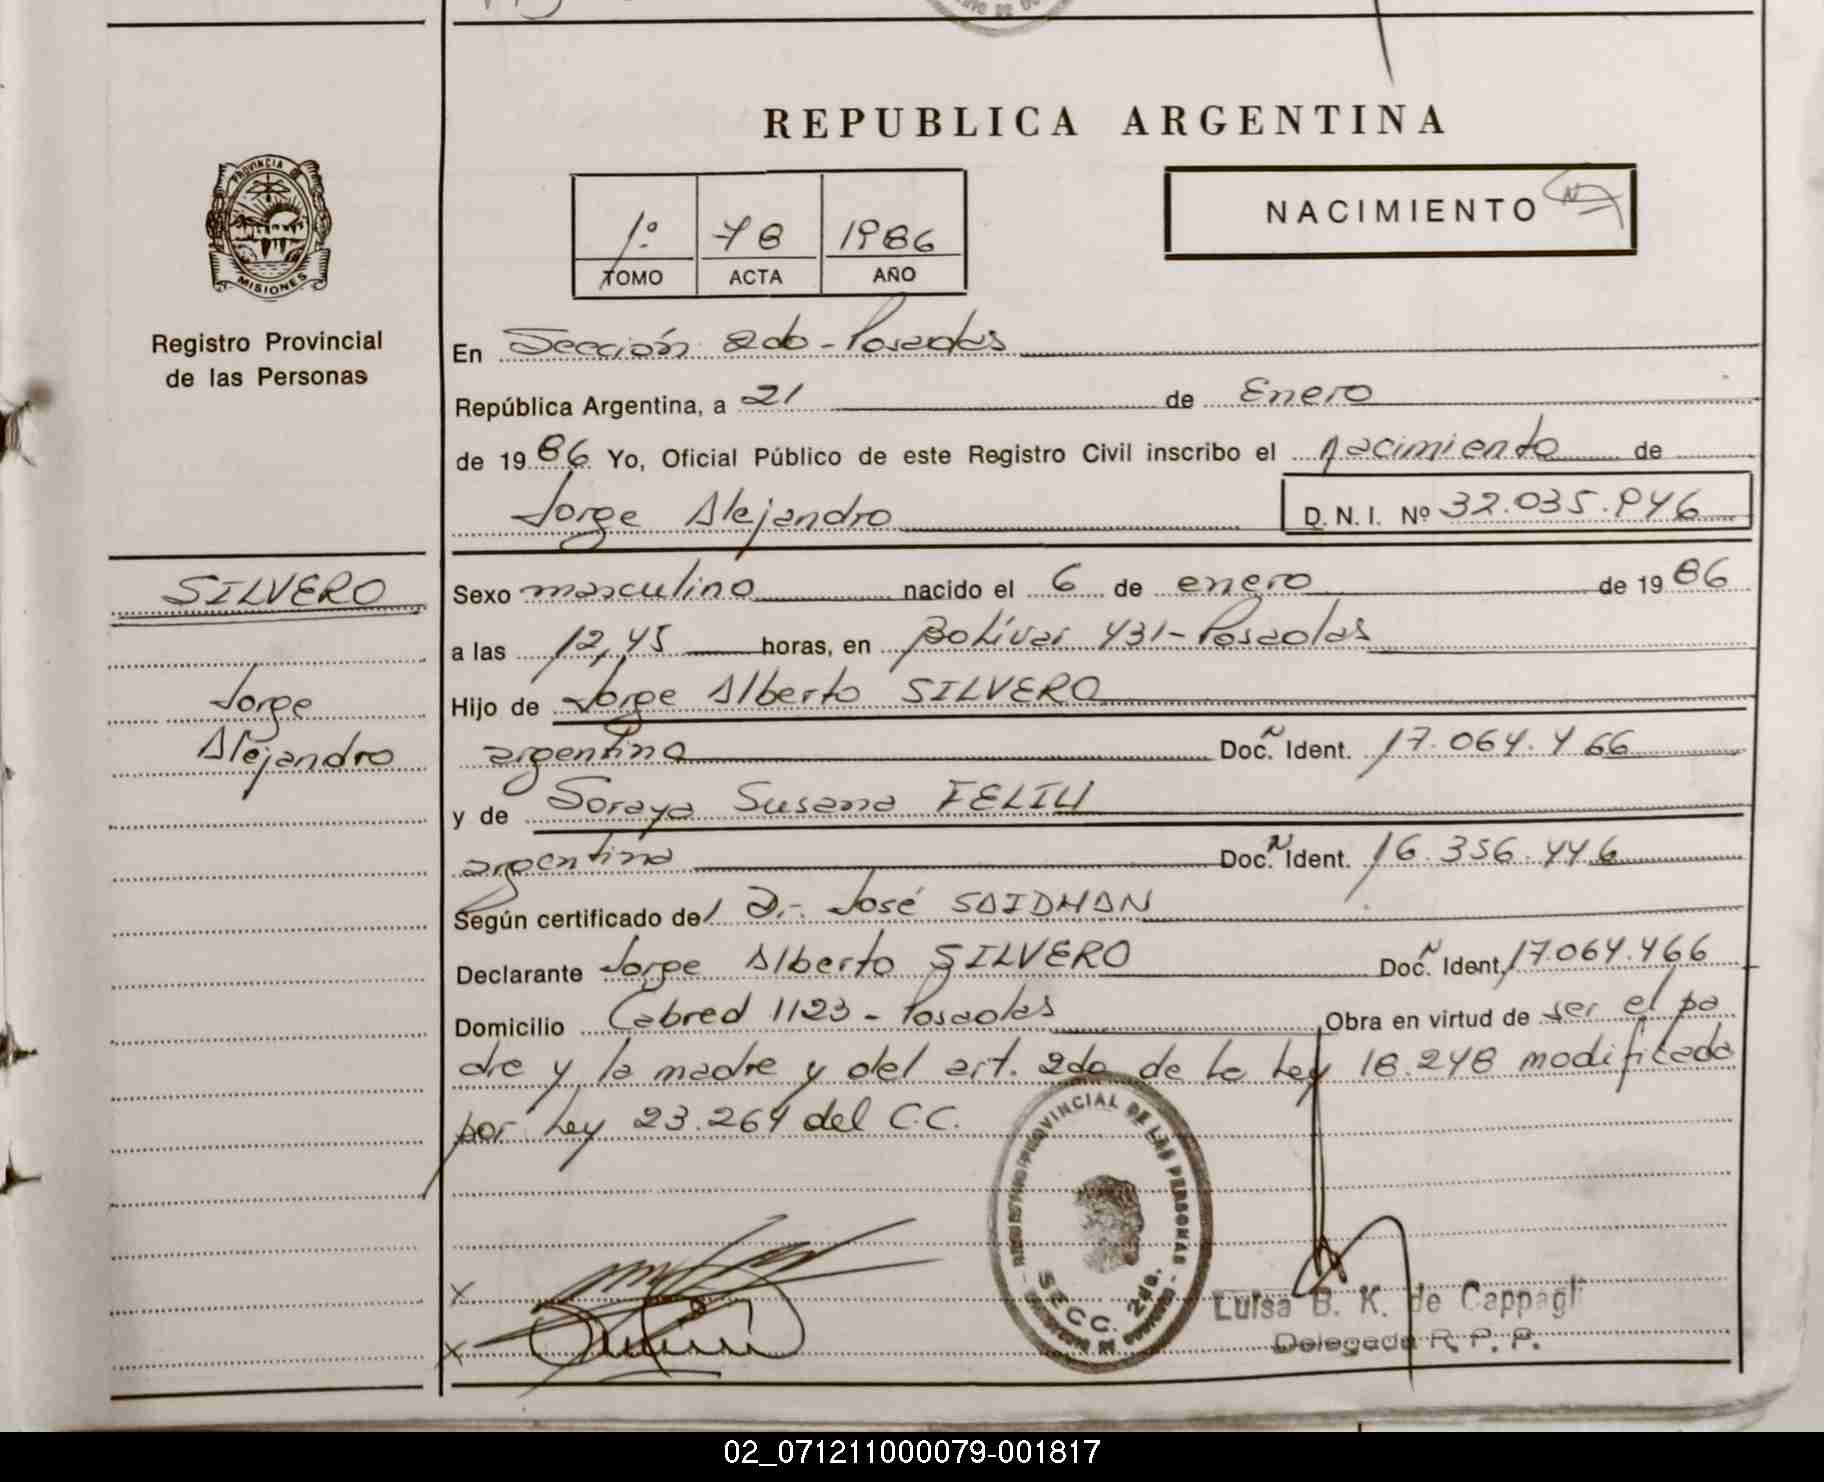 REPUBLICA ARGENTINA
PROVINCIA
MISIONES
Registro Provincial
de las Personas
1º 78 1986
TOMO ACTA AÑO
NACIMIENTO
En Sección 2da - Posadas
República Argentina, a 21 de Enero
de 1986 Yo, Oficial Público de este Registro Civil inscribo el nacimiento de
Jorge Alejandro D. N. I. Nº 32.035.946
SILVERO
Jorge
Alejandro
Sexo masculino nacido el 6 de enero de 1986
a las 12,45 horas, en Bolívar 431 - Posadas
Hijo de Jorge Alberto SILVERO
argentino Doc. Ident. 17.064.466
y de Soraya Susana FELIU
argentina Doc. Ident. 16.356.446
Según certificado del Dr. José SAIDMAN
Declarante Jorge Alberto SILVERO Doc. Ident. 17.064.466
Domicilio Cabred 1123 - Posadas Obra en virtud de ser el pa
dre y la madre y del art. 2do de la Ley 18.248 modificada
por Ley 23.264 del C.C.
REGISTRO PROVINCIAL DE LAS PERSONAS
SECC. 2da.
X
X
Luisa B. K. de Cappagli
Delegada R. P. P.
02_071211000079-001817